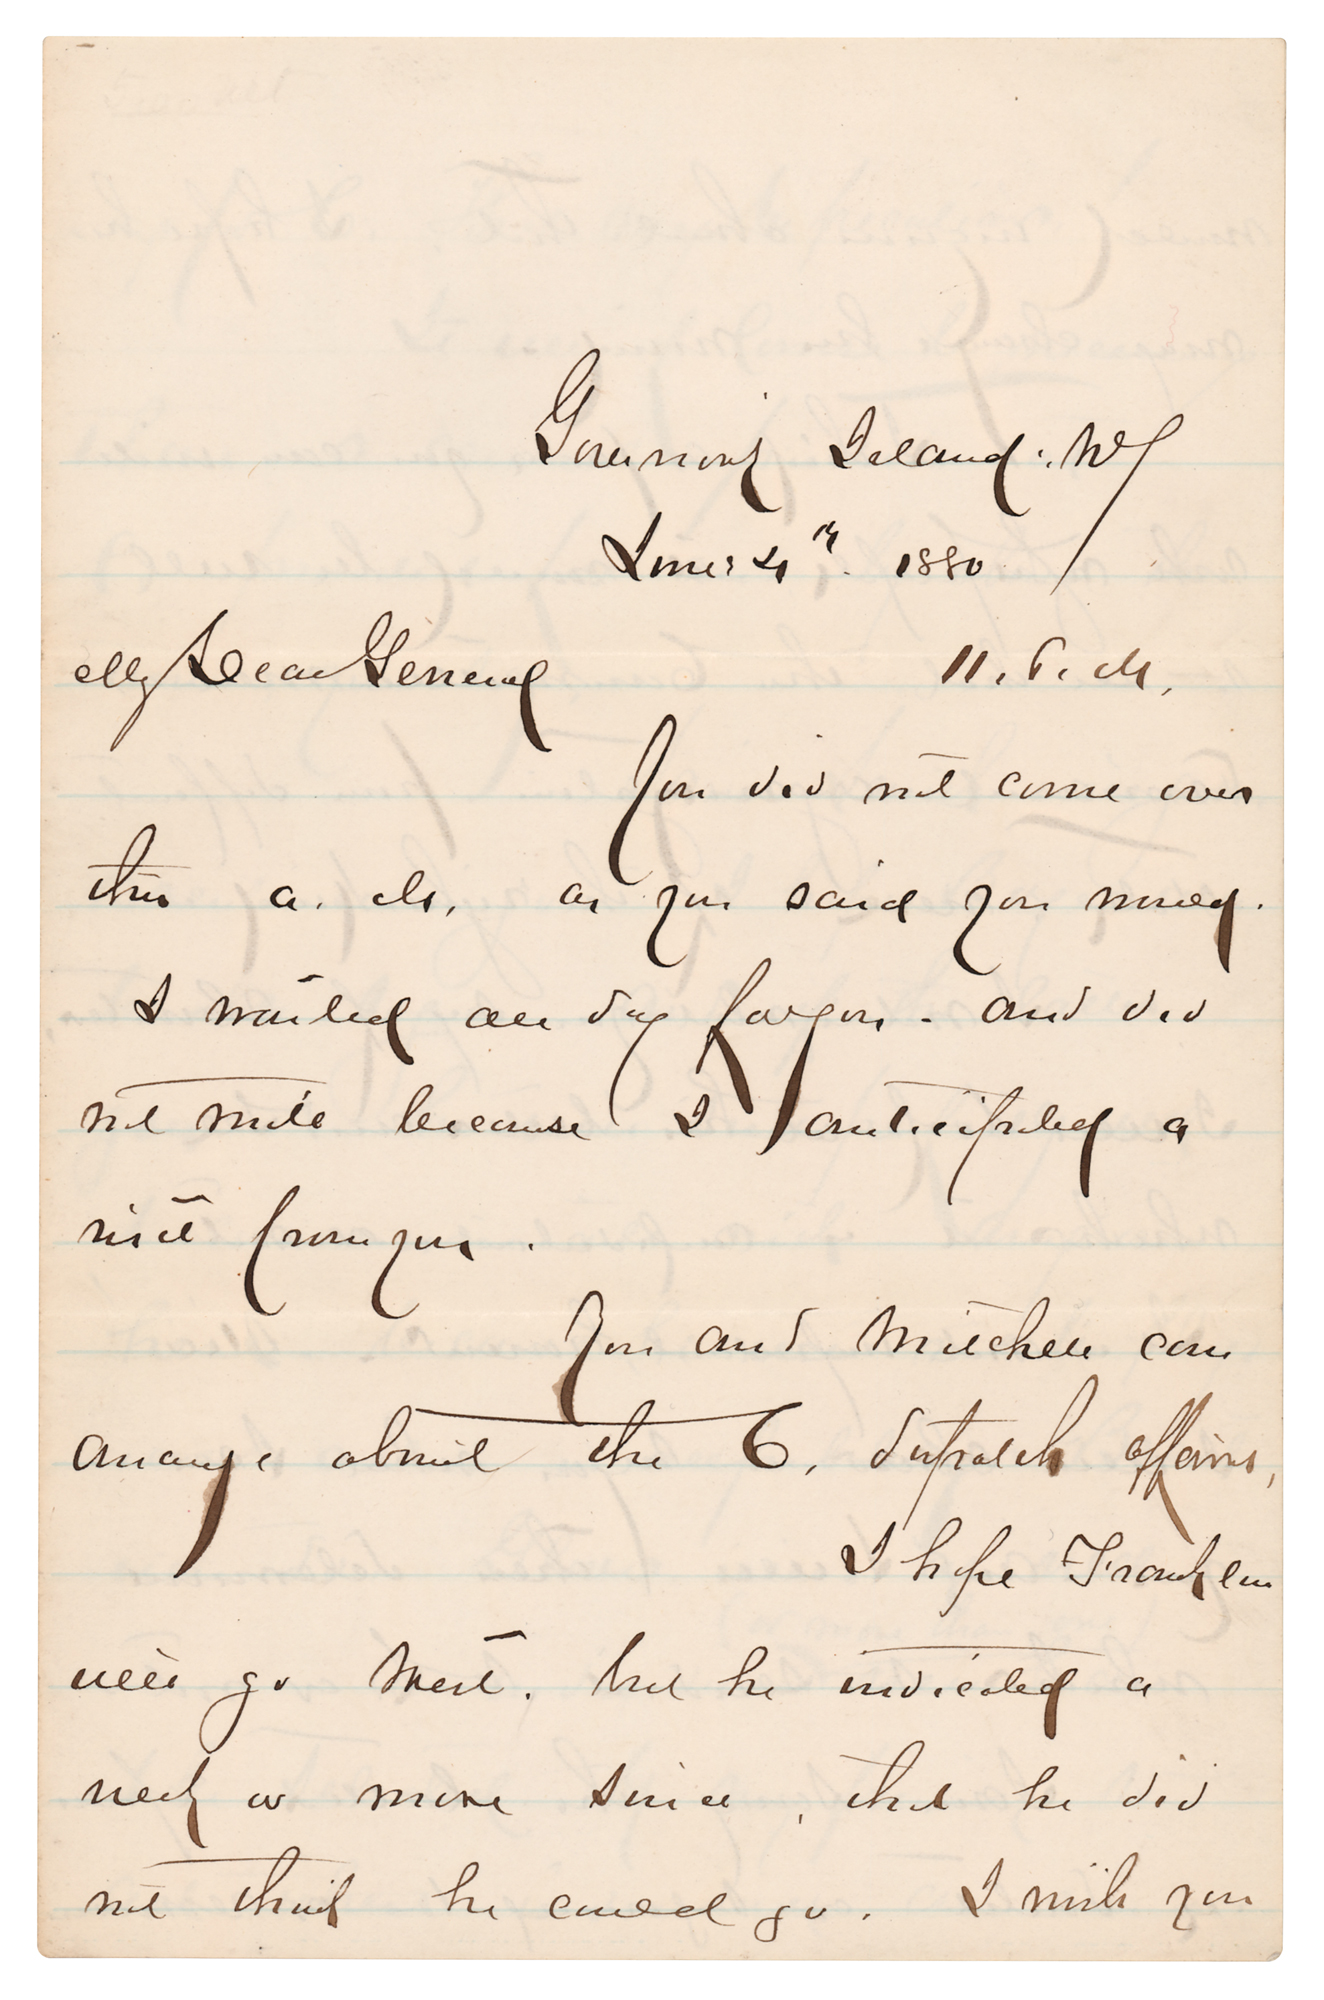 Governor's Island, NY
June 4th. 1880
My Dear General
11. P. M.
You did not come over
this a. M. as you said you would.
I waited all day for you - and did
not write because I anticipated a
visit from you.
You and Mitchell can
arrange about the C. dispatch affairs,
I hope Franklin
will go West. but he indicated a
week or more since, that he did
not think he could go. I wish you